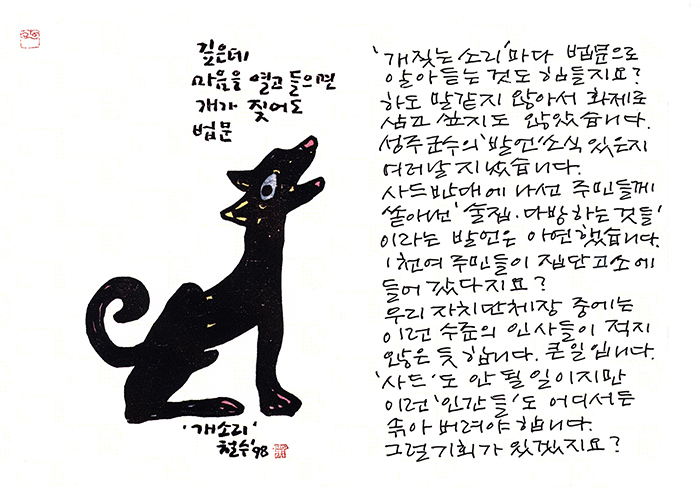 깊은데
마음을 열고 들으면
개가 짖어도
법문
'개소리'
철수 '98
'개짖는 소리'마다 법문으로
알아듣는 것도 힘들지요?
하도 말같지 않아서 화제로
삼고 싶지도 않았습니다.
성주군수의 '발언' 소식 있은지
여러날 지났습니다.
사드반대에 나선 주민들께
쏟아선 '술집·다방하는 것들'
이라는 발언은 아연했습니다.
1천여 주민들이 집단고소에
들어갔다지요?
우리 자치단체장 중에는
이런 수준의 인사들이 적지
않은 듯 합니다. 큰일입니다.
'사드'도 안 될 일이지만
이런 '인간들'도 어디서든
솎아 버려야 합니다.
그럴 기회가 있겠지요?